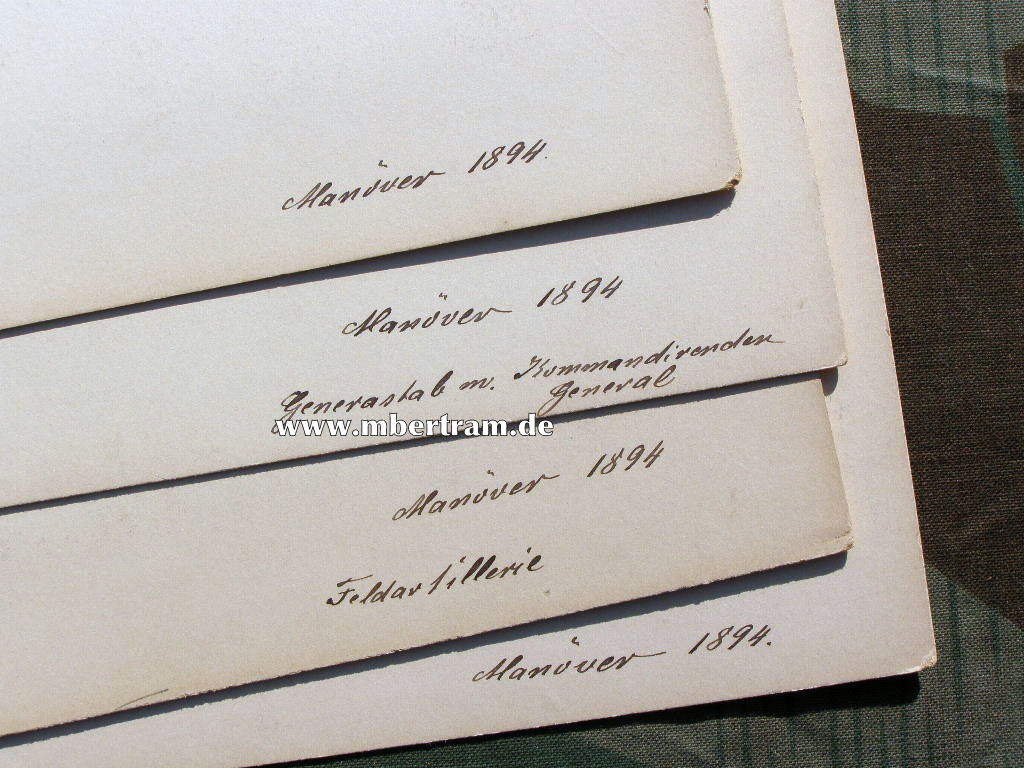 Manöver 1894.
Manöver 1894
Generastab m. Kommandirenden
General
www.mbertram.de
Manöver 1894
Feldartillerie
Manöver 1894.